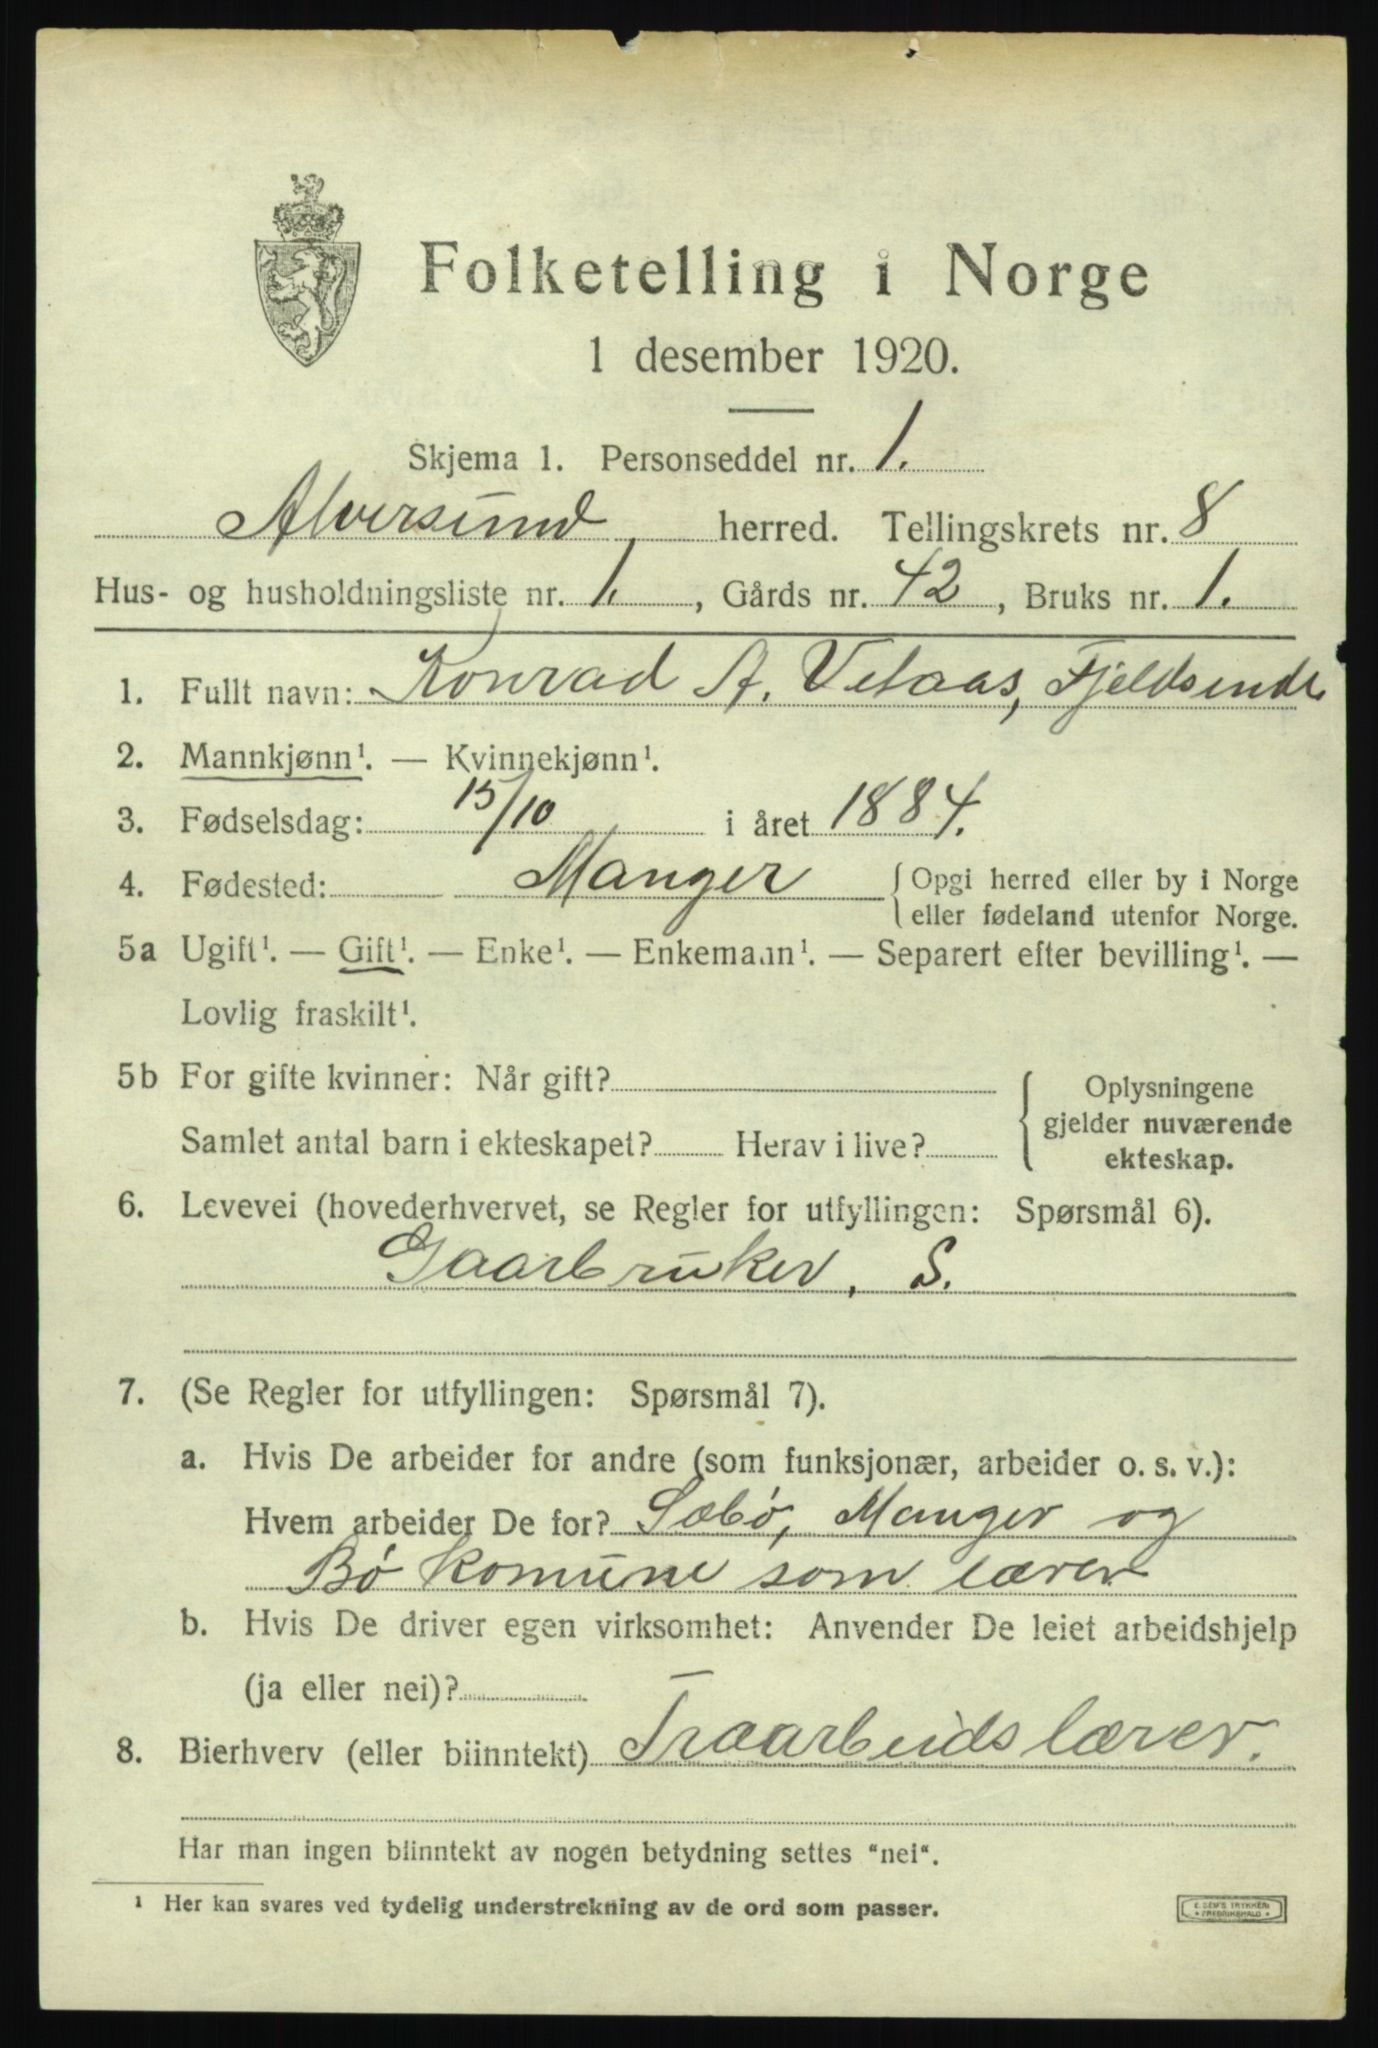 Folketelling i Norge
1 desember 1920.
Skjema 1. Personseddel nr. 1.
Alversund, herred. Tellingskrets nr. 8
Hus- og husholdningsliste nr. 1. , Gårds nr. 42 , Bruks nr. 1.
1. Fullt navn: Konrad A. Vetaas, Fjeldsende
2. Mannkjønn¹. — Kvinnekjønn¹.
3. Fødselsdag: 15/10 i året 1884.
4. Fødested: Manger { Opgi herred eller by i Norge
eller fødeland utenfor Norge.
5a Ugift¹. — Gift¹. — Enke¹. — Enkemann¹. — Separert efter bevilling¹. —
Lovlig fraskilt¹.
5b For gifte kvinner: Når gift?
Samlet antal barn i ekteskapet? Herav i live?
{ Oplysningene
gjelder nuværende
ekteskap.
6. Levevei (hovederhvervet, se Regler for utfyllingen: Spørsmål 6).
Gaarbruker, S.
7. (Se Regler for utfyllingen: Spørsmål 7).
a. Hvis De arbeider for andre (som funksjonær, arbeider o. s. v.):
Hvem arbeider De for? Sæbø, Manger og
Bø komune som lærer
b. Hvis De driver egen virksomhet: Anvender De leiet arbeidshjelp
(ja eller nei)?
8. Bierhverv (eller biinntekt) Træarbeidslærer.
Har man ingen biinntekt av nogen betydning settes "nei".
¹ Her kan svares ved tydelig understrekning av de ord som passer.
E. SEM'S TRYKKERI
FREDRIKSHALD